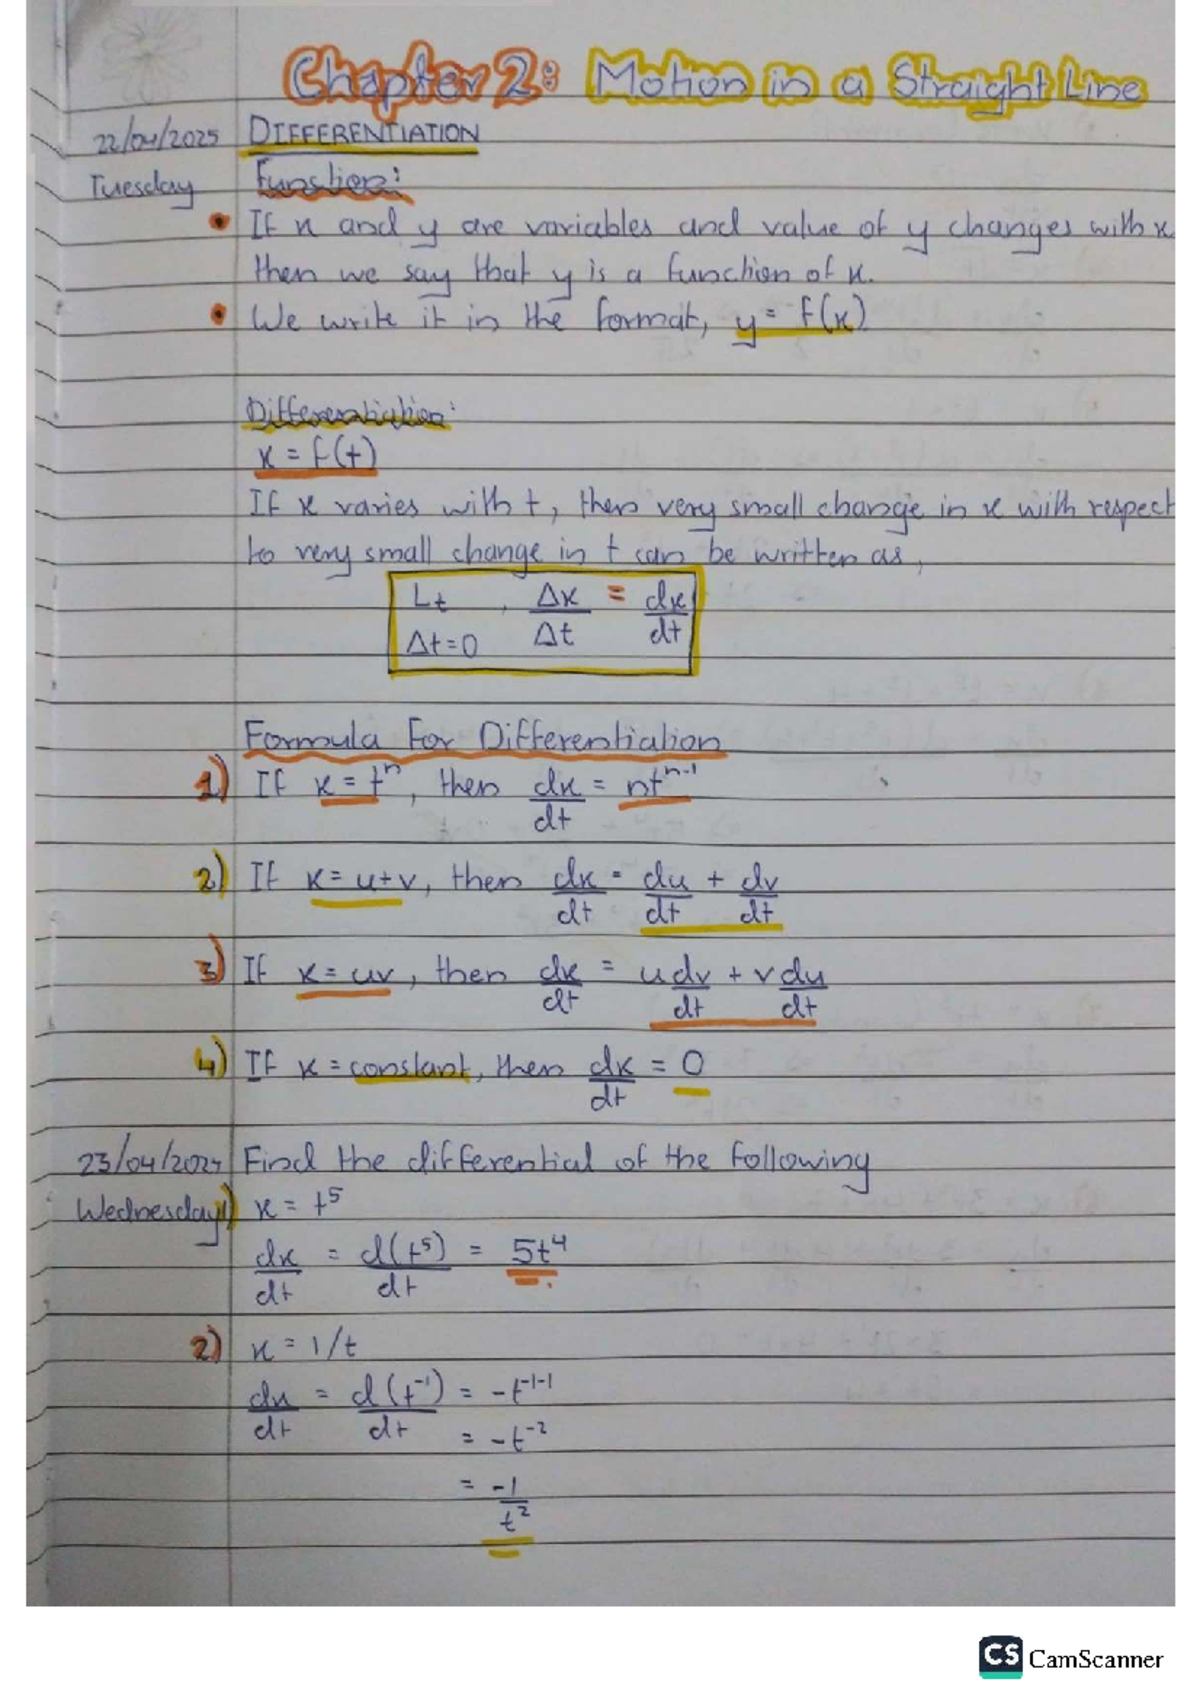 Chapter 2: Motion in a Straight Line
22/04/2025 DIFFERENTIATION
Tuesday Function:
• If x and y are variables and value of y changes with x
then we say that y is a function of x.
• We write it in the format, y = f(x)
Differentiation:
x = f(t)
If x varies with t, then very small change in x with respect
to very small change in t can be written as,
Lt Δt=0 , Δx/Δt = dx/dt
Formula For Differentiation
1) If x = tⁿ, then dx/dt = ntⁿ⁻¹
2) If x = u+v, then dx/dt = du/dt + dv/dt
3) If x = uv, then dx/dt = u dv/dt + v du/dt
4) If x = constant, then dx/dt = 0
23/04/2025 Find the differential of the following
Wednesday 1) x = t⁵
dx/dt = d(t⁵)/dt = 5t⁴
2) x = 1/t
dx/dt = d(t⁻¹)/dt = -t⁻¹⁻¹
= -t⁻²
= -1/t²
CS CamScanner